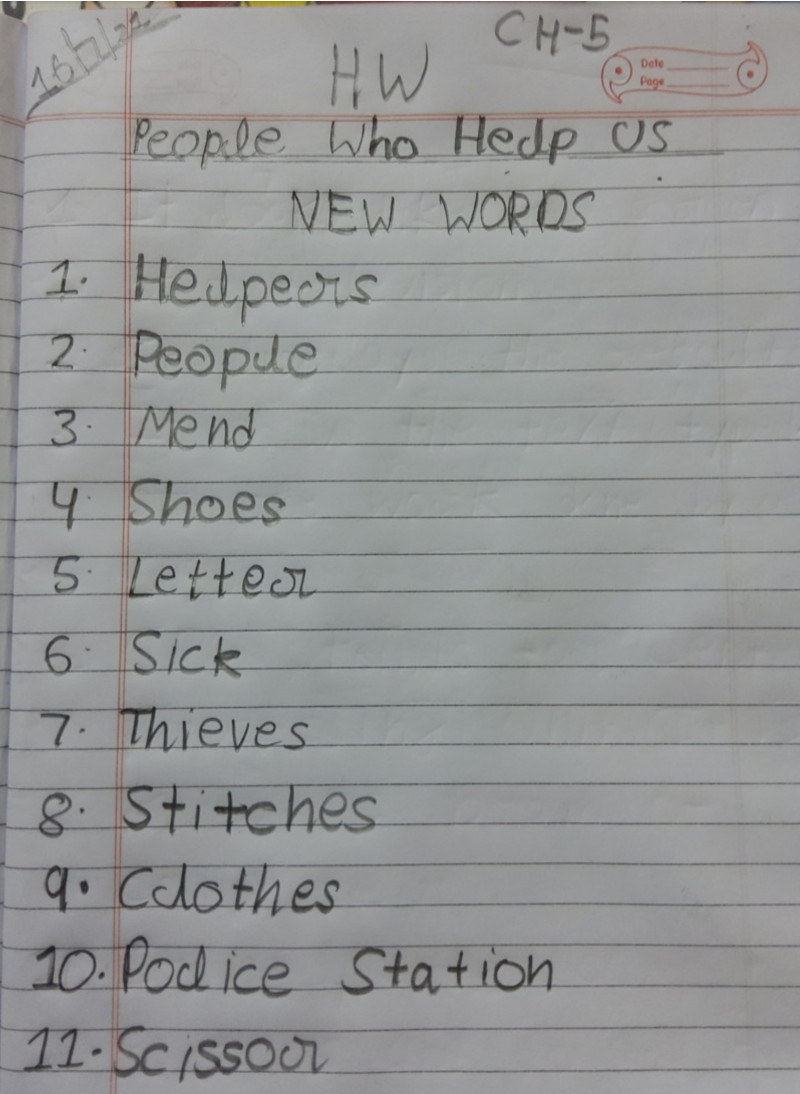 CH-5
HW
Date
Page
People Who Help Us
NEW WORDS
1. Helpers
2. People
3. Mend
4. Shoes
5. Letter
6. Sick
7. Thieves
8. Stitches
9. Clothes
10. Police Station
11. Scissor